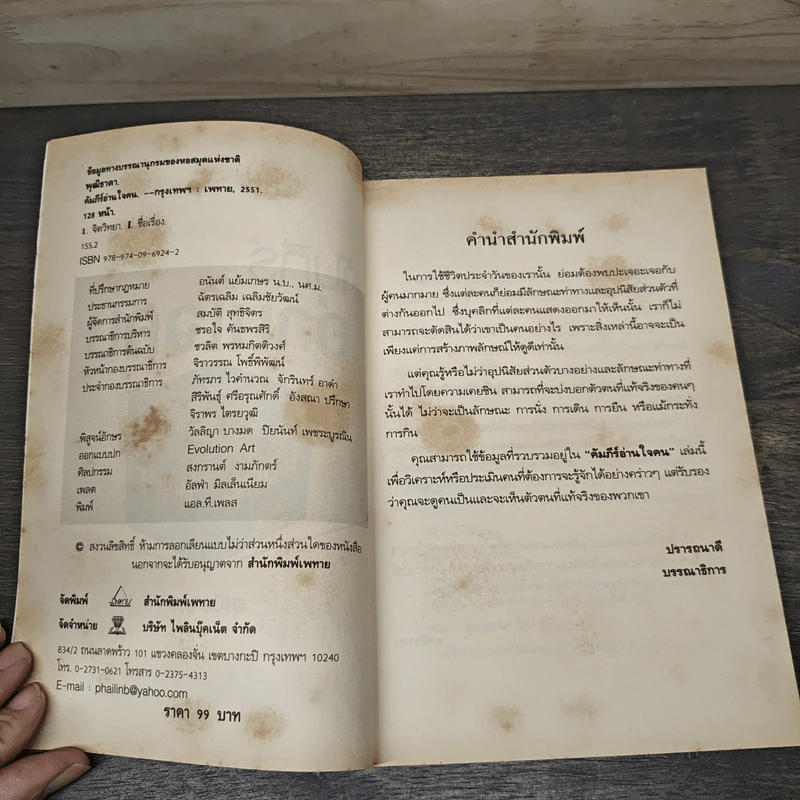 ข้อมูลทางบรรณานุกรมของหอสมุดแห่งชาติ
พุฒิธาดา.
คัมภีร์อ่านใจคน. --กรุงเทพฯ : เพทาย, 2551.
128 หน้า.
1. จิตวิทยา. I. ชื่อเรื่อง.
155.2
ISBN 978-974-09-6924-2
ที่ปรึกษากฎหมาย อนันต์ แย้มเกษร น.บ., นศ.ม.
ประธานกรรมการ ฉัตรเฉลิม เฉลิมชัยวัฒน์
ผู้จัดการสำนักพิมพ์ สมบัติ สุทธิจิตร
บรรณาธิการบริหาร ชรอใจ คันธพรสิริ
บรรณาธิการต้นฉบับ ชวลิต พรหมกิตติวงศ์
หัวหน้ากองบรรณาธิการ จิราวรรณ โพธิ์พิพัฒน์
ประจำกองบรรณาธิการ ภัทรภร ไวคำนวณ จักรินทร์ อาดำ
สิริพันธุ์ ศรีอรุณศักดิ์ อังสณา ปรึกษา
จิราพร ไตรยวุฒิ
พิสูจน์อักษร วัลลิญา บางมด ปิยนันท์ เพชระบูรณิน
ออกแบบปก Evolution Art
ศิลปกรรม สงกรานต์ งามภักตร์
เพลต อัลฟ่า มิลเล็นเนียม
พิมพ์ แอล.ที.เพลส
© สงวนลิขสิทธิ์ ห้ามการลอกเลียนแบบไม่ว่าส่วนหนึ่งส่วนใดของหนังสือ
นอกจากจะได้รับอนุญาตจาก สำนักพิมพ์เพทาย
จัดพิมพ์ เพทาย สำนักพิมพ์เพทาย
จัดจำหน่าย บริษัท ไพลินบุ๊คเน็ต จำกัด
834/2 ถนนลาดพร้าว 101 แขวงคลองจั่น เขตบางกะปิ กรุงเทพฯ 10240
โทร. 0-2731-0621 โทรสาร 0-2375-4313
E-mail : phailinb@yahoo.com
ราคา 99 บาท
คำนำสำนักพิมพ์
ในการใช้ชีวิตประจำวันของเรานั้น ย่อมต้องพบปะเจอะเจอกับ
ผู้คนมากมาย ซึ่งแต่ละคนก็ย่อมมีลักษณะท่าทางและอุปนิสัยส่วนตัวที่
ต่างกันออกไป ซึ่งบุคลิกที่แต่ละคนแสดงออกมาให้เห็นนั้น เราก็ไม่
สามารถจะตัดสินได้ว่าเขาเป็นคนอย่างไร เพราะสิ่งเหล่านี้อาจจะเป็น
เพียงแค่การสร้างภาพลักษณ์ให้ดูดีเท่านั้น
แต่คุณรู้หรือไม่ว่าอุปนิสัยส่วนตัวบางอย่างและลักษณะท่าทางที่
เราทำไปโดยความเคยชิน สามารถที่จะบ่งบอกตัวตนที่แท้จริงของคนๆ
นั้นได้ ไม่ว่าจะเป็นลักษณะ การนั่ง การเดิน การยืน หรือแม้กระทั่ง
การกิน
คุณสามารถใช้ข้อมูลที่รวบรวมอยู่ใน “คัมภีร์อ่านใจคน” เล่มนี้
เพื่อวิเคราะห์หรือประเมินคนที่ต้องการจะรู้จักได้อย่างคร่าวๆ แต่รับรอง
ว่าคุณจะดูคนเป็นและจะเห็นตัวตนที่แท้จริงของพวกเขา
ปรารถนาดี
บรรณาธิการ